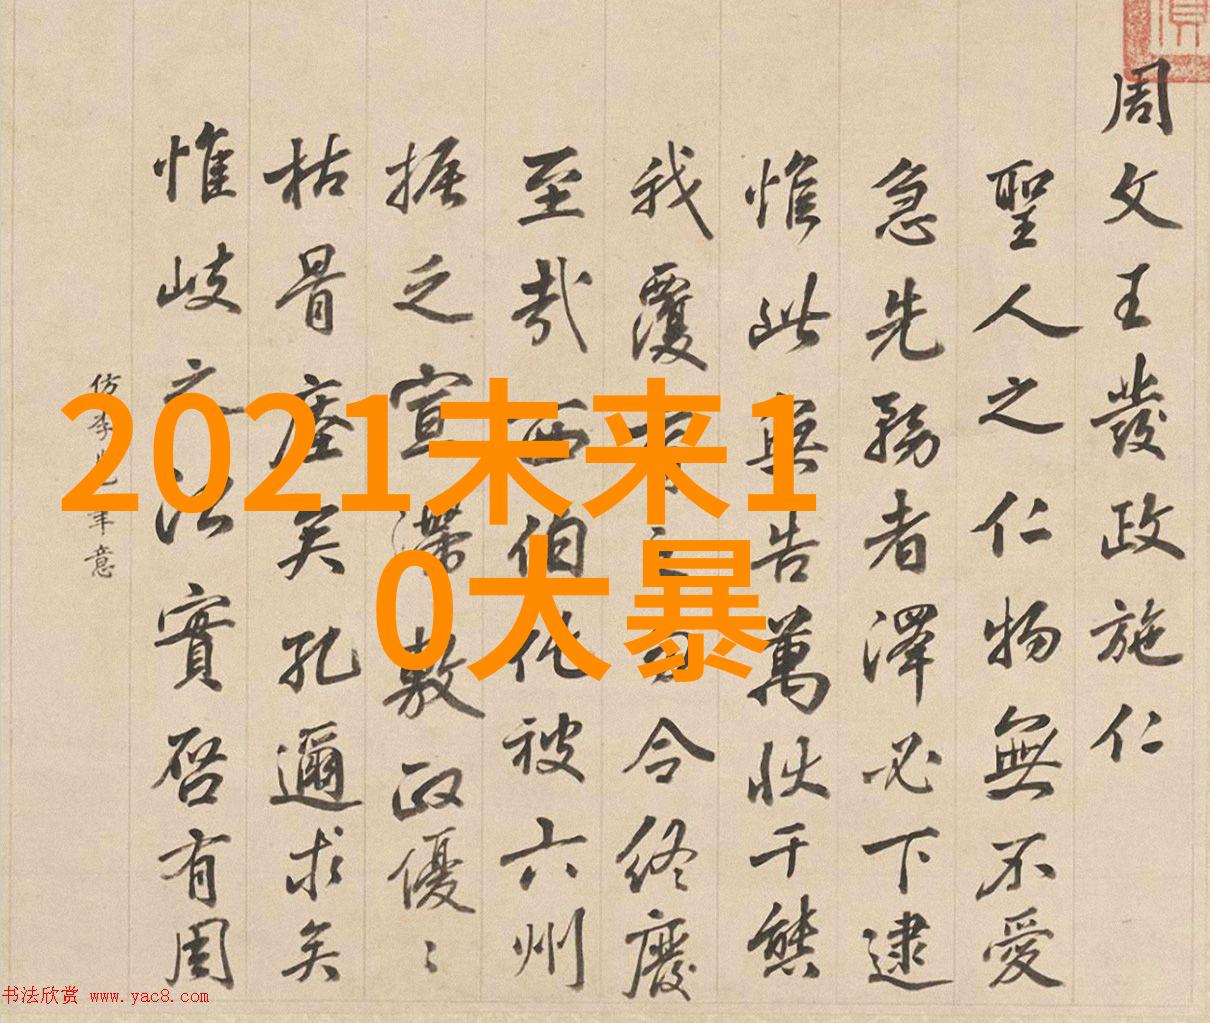 周文王發政施仁
聖人之仁物無不愛
急先務者澤必下逮
惟此無告萬狀千態
我覆之令終廢
至哉西伯化被六州
振之宣滯敷政優ミ
枯骨矣孔邇求矣
惟岐之治實啓有周
仿李意
2021未来1
0大暴
书法欣赏 www.yac8.com